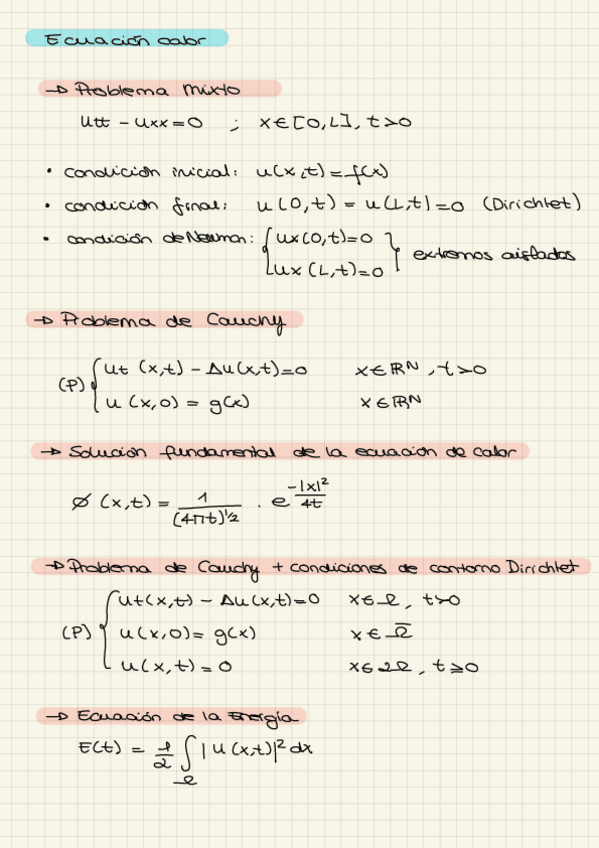 Ecuación calor
→ Problema mixto
utt - uxx = 0 ; x ∈ [0,L], t>0
• condición inicial: u(x,t) = f(x)
• condición final: u(0,t) = u(L,t) = 0 (Dirichlet)
• condición de Neuman: { ux(0,t)=0 } extremos aislados
ux(L,t)=0
→ Problema de Cauchy
(P) { ut (x,t) - Δu(x,t)=0 x ∈ ℝN, t>0
u (x,0) = g(x) x ∈ ℝN
→ Solución fundamental de la ecuación de calor
Ø (x,t) = 1/(4πt)^1/2 · e^(-|x|²/4t)
→ Problema de Cauchy + condiciones de contorno Dirichlet
(P) { ut(x,t) - Δu(x,t)=0 x ∈ Ω, t>0
u(x,0) = g(x) x ∈ Ω̅
u(x,t) = 0 x ∈ ∂Ω, t ≥ 0
→ Ecuación de la Energía
E(t) = 1/2 ∫Ω |u(x,t)|² dx